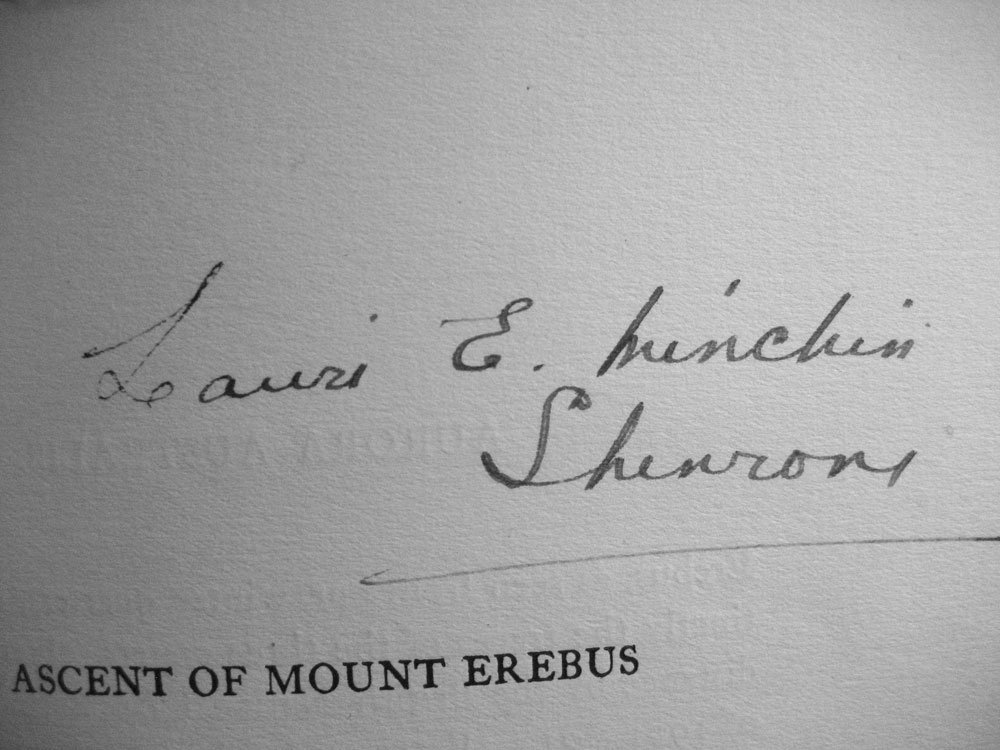 Lauri E. Minchin
Shenrone
ASCENT OF MOUNT EREBUS